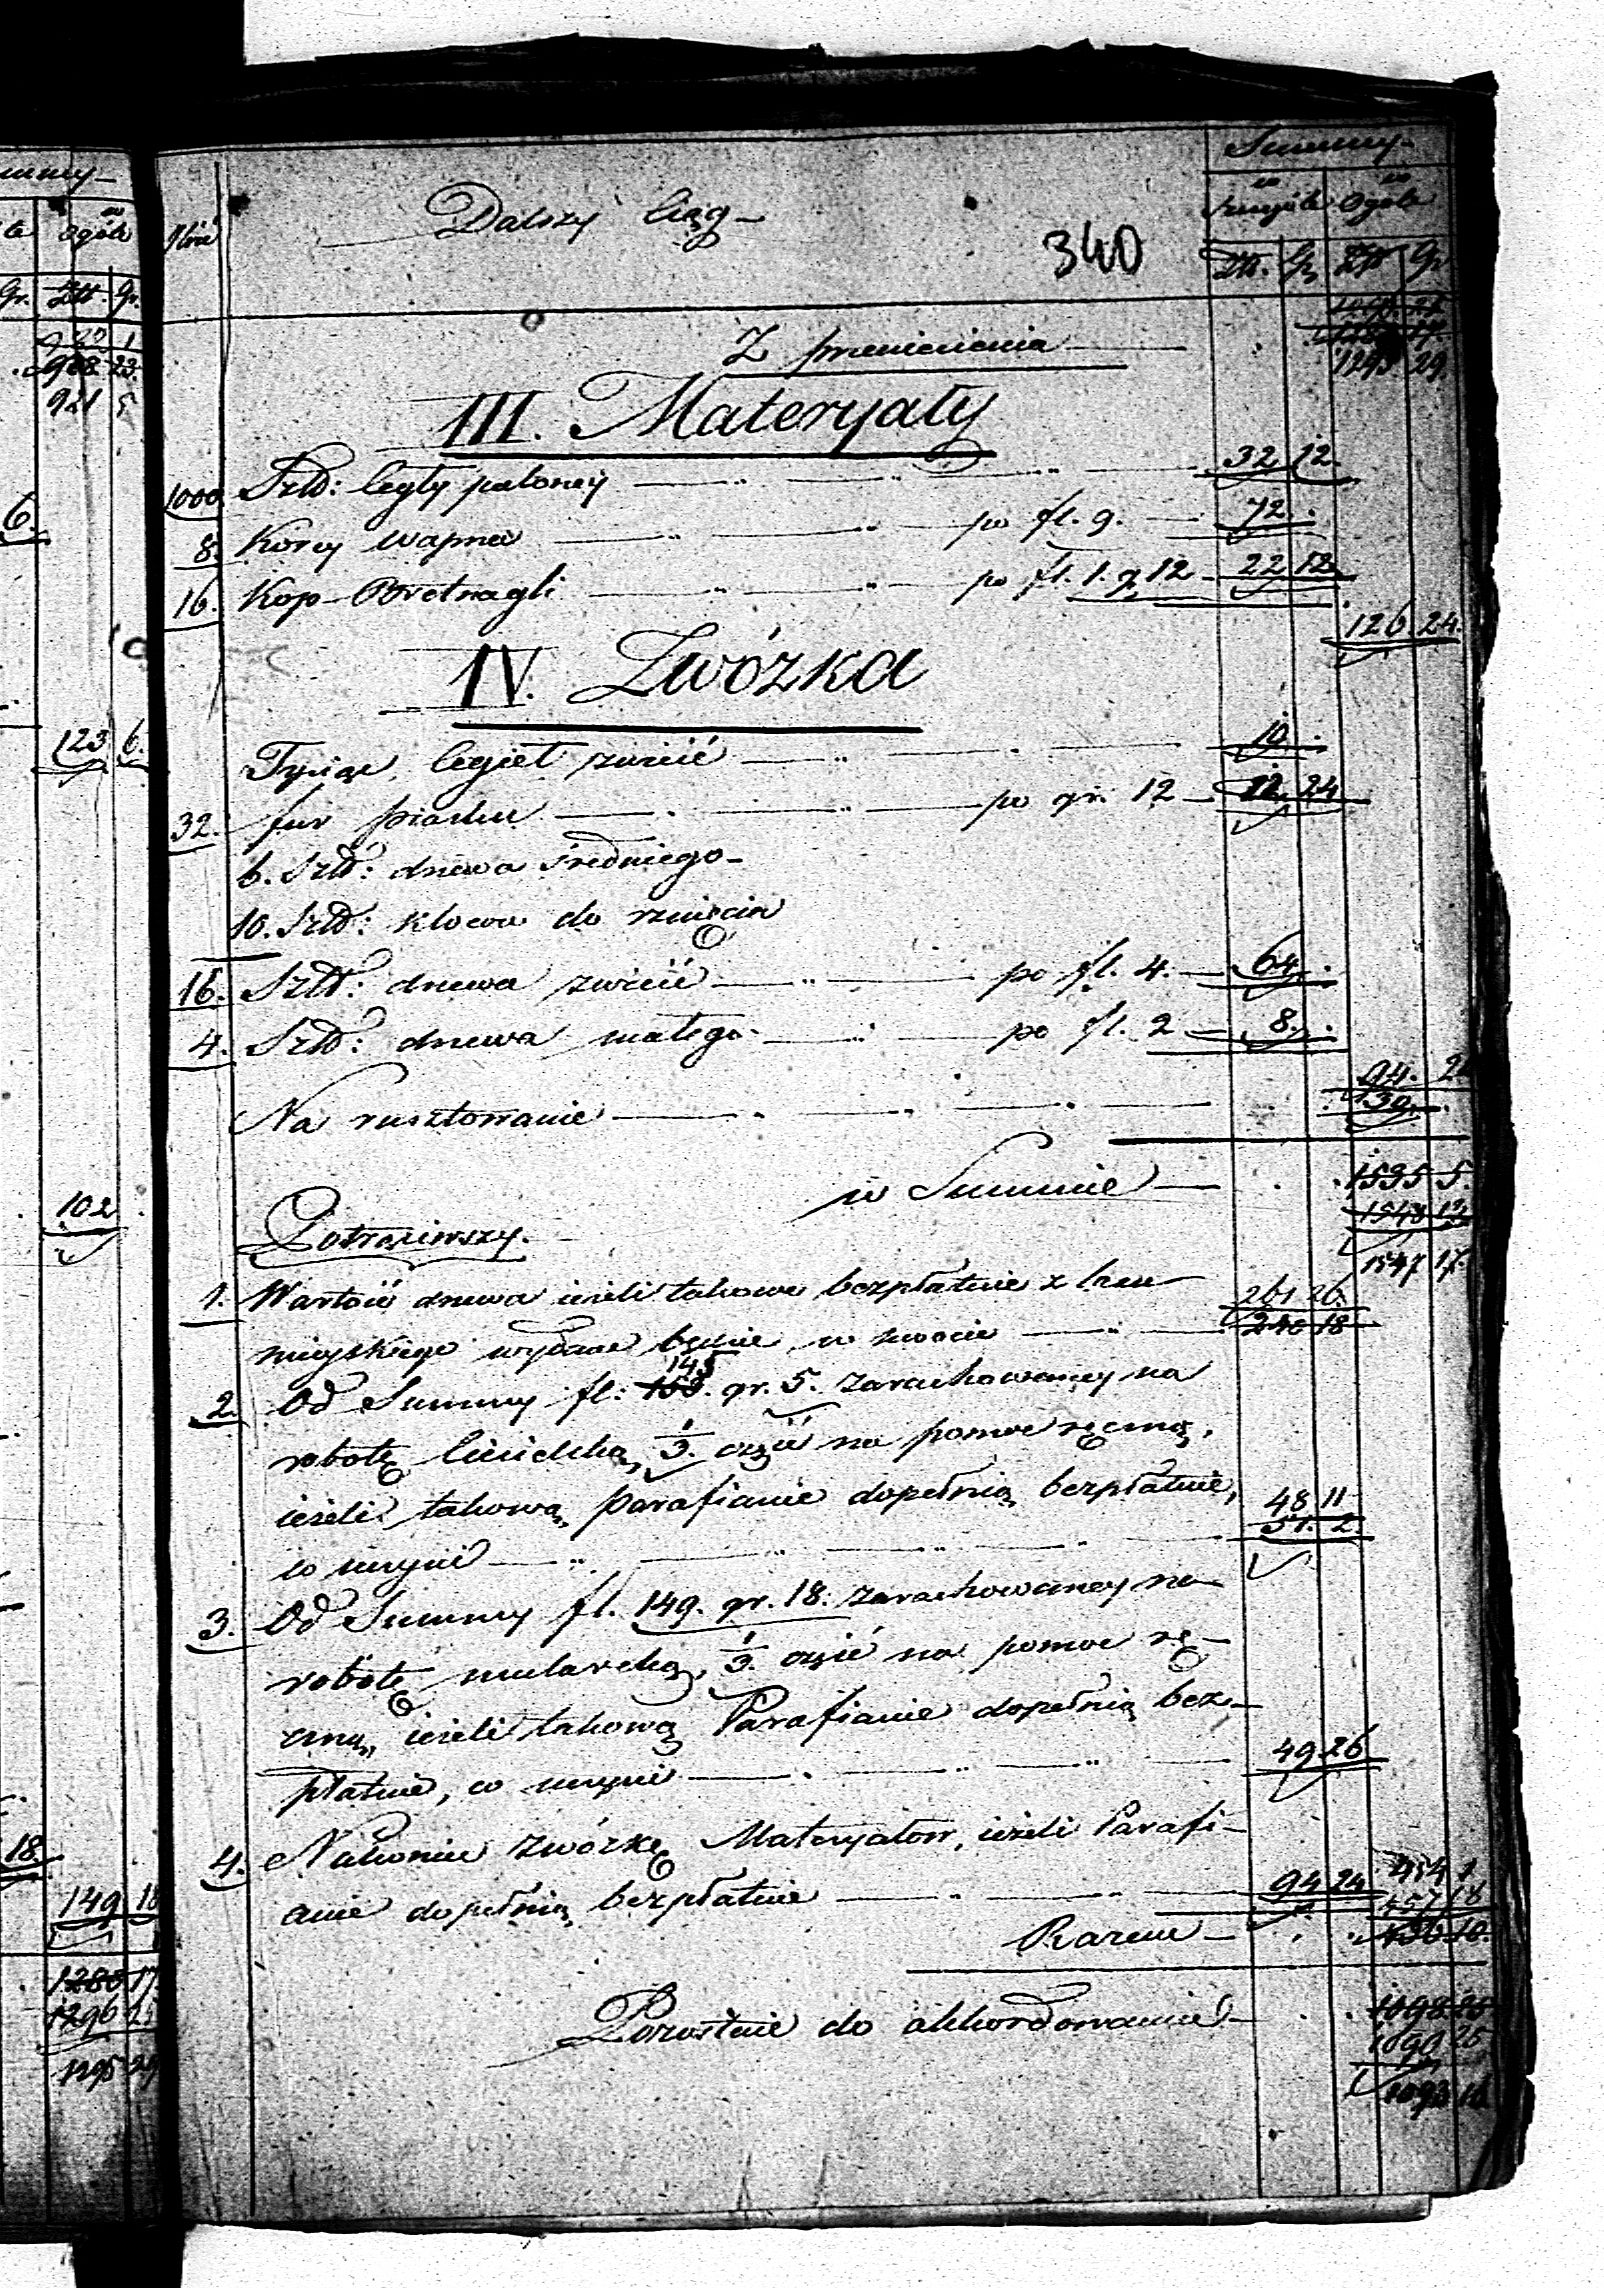 Summy
Dalszy Ciąg
340
Ilość
w szczególe
w Ogóle
Złt. Gr Złt Gr
Z przeniesienia 1295 29.
III. Materyały
1000. Sztk: Cegły paloney 32 12.
8. Korcy Wapna po fl. 9. 72.
16. Kop Bretnagli po fl. 1. g 12 22 12
126 24.
IV. Zwózka
Tysiąc Cegieł zwieść 10.
32. fur piasku po gr. 12 12 24
6. Sztk: drzewa średniego
10. Sztk: kloców do rznięcia
16. Sztk: drzewa zwieść po fl. 4. 64.
4. Sztk: drzewa małego po fl. 2 8.
94. 24
Na rusztowanie 30.
w Summie 1535 5.
1548 13
1547 17.
Potrąciwszy.
1. Wartość drzewa ieżeli takowe bezpłatnie z lasu 261 26.
mieyskiego wydane będzie, w kwocie 246 18
2. Od Summy fl: 153. 145 gr. 5. zarachowaney na
robotę Ciesielską, 1/3. część na pomoc ręczną,
ieżeli takową Parafianie dopełnią bezpłatnie, 48 11
co uczyni 51. 2.
3. Od Summy fl. 149. gr. 18. zarachowaney na
robotę mularską, 1/3. część na pomoc rę-
czną, ieżeli takową Parafianie dopełnią bez-
płatnie, co uczyni 49 26
4. Nakoniec zwózkę Materyałow, ieżeli Parafi-
anie dopełnią bezpłatnie 94 24 454 1
457 18
Razem
Pozostaie do akkordowania 1098 25
1090 25
1093 16